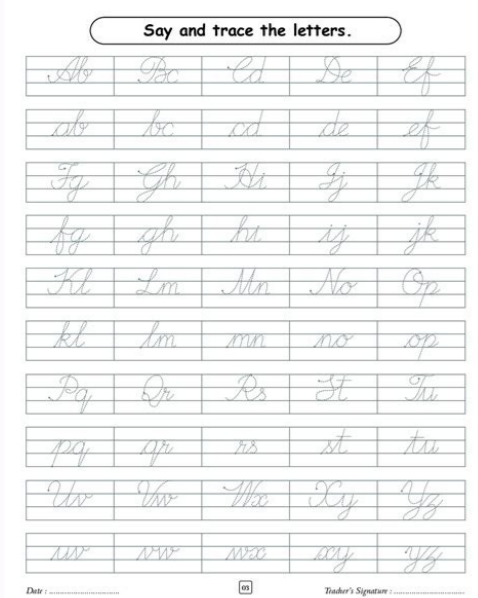 Say and trace the letters.
Ab Bc Cd De Ef
ab bc cd de ef
Fg Gh Hi Ij Jk
fg gh hi ij jk
Kl Lm Mn No Op
kl lm mn no op
Pq Qr Rs St Tu
pq qr rs st tu
Uv Vw Wx Xy Yz
uv vw wx xy yz
Date : .............................. 03 Teacher's Signature : ..............................